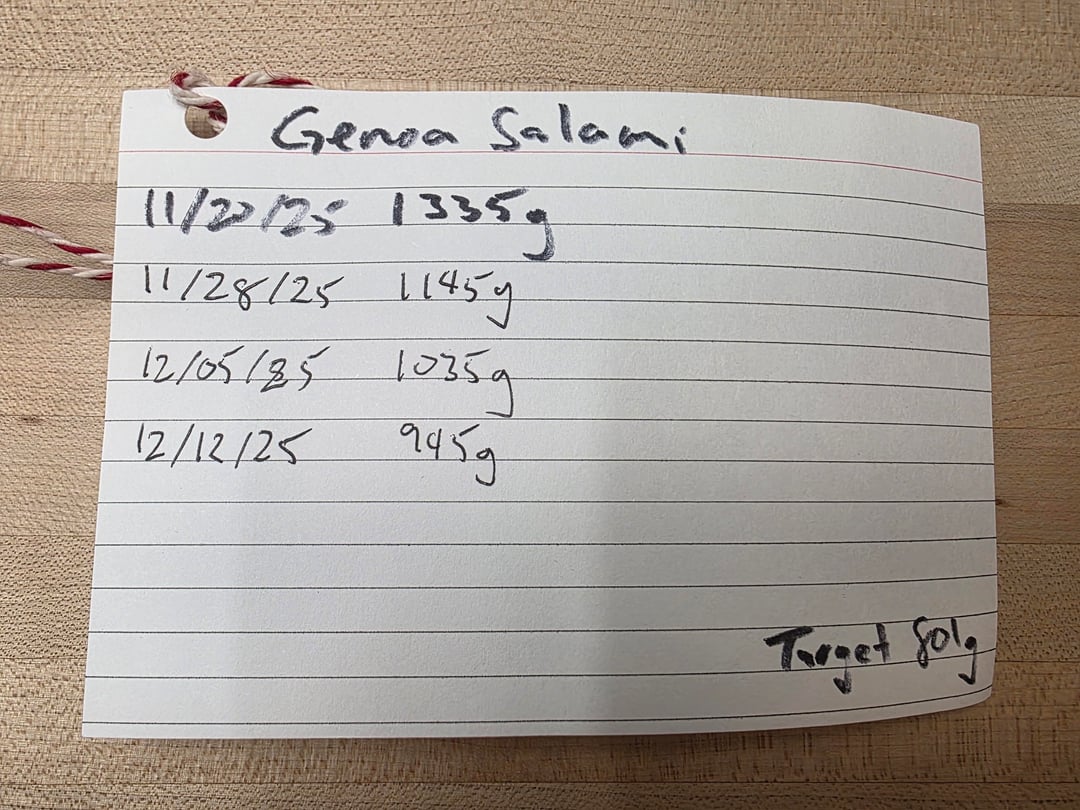 Genoa Salami
11/22/25 1335g
11/28/25 1145g
12/05/25 1035g
12/12/25 945g
Target 801g